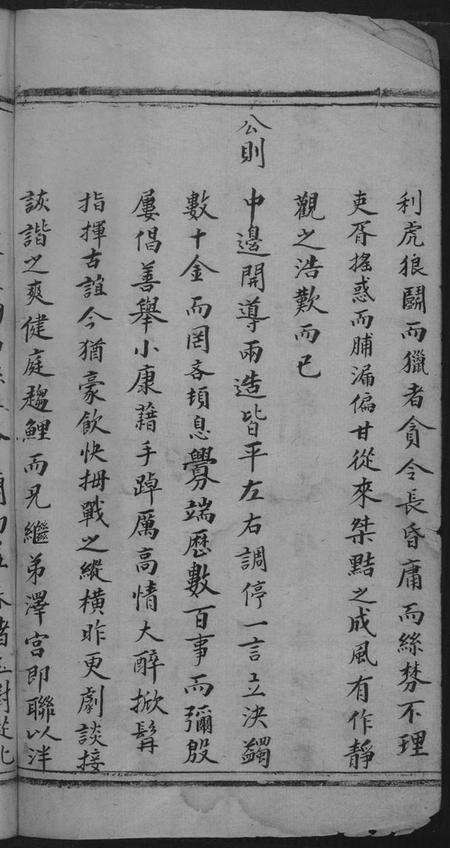 利虎狼鬭而獵者貪令長昏庸而絲棼不理
吏胥搖惑而脯漏偏甘從來桀黠之成風有作靜
觀之浩歎而已
公則中邊開導兩造皆平左右調停一言立決蠲
數十金而罔吝頃息釁端歷數百事而彌殷
屢倡善舉小康藉手踔厲高情大醉掀髯
指揮古誼今猶豪飲快拇戰之縱橫昨更劇談接
詼諧之爽健庭趨鯉而兄繼弟澤宮即聯以泮